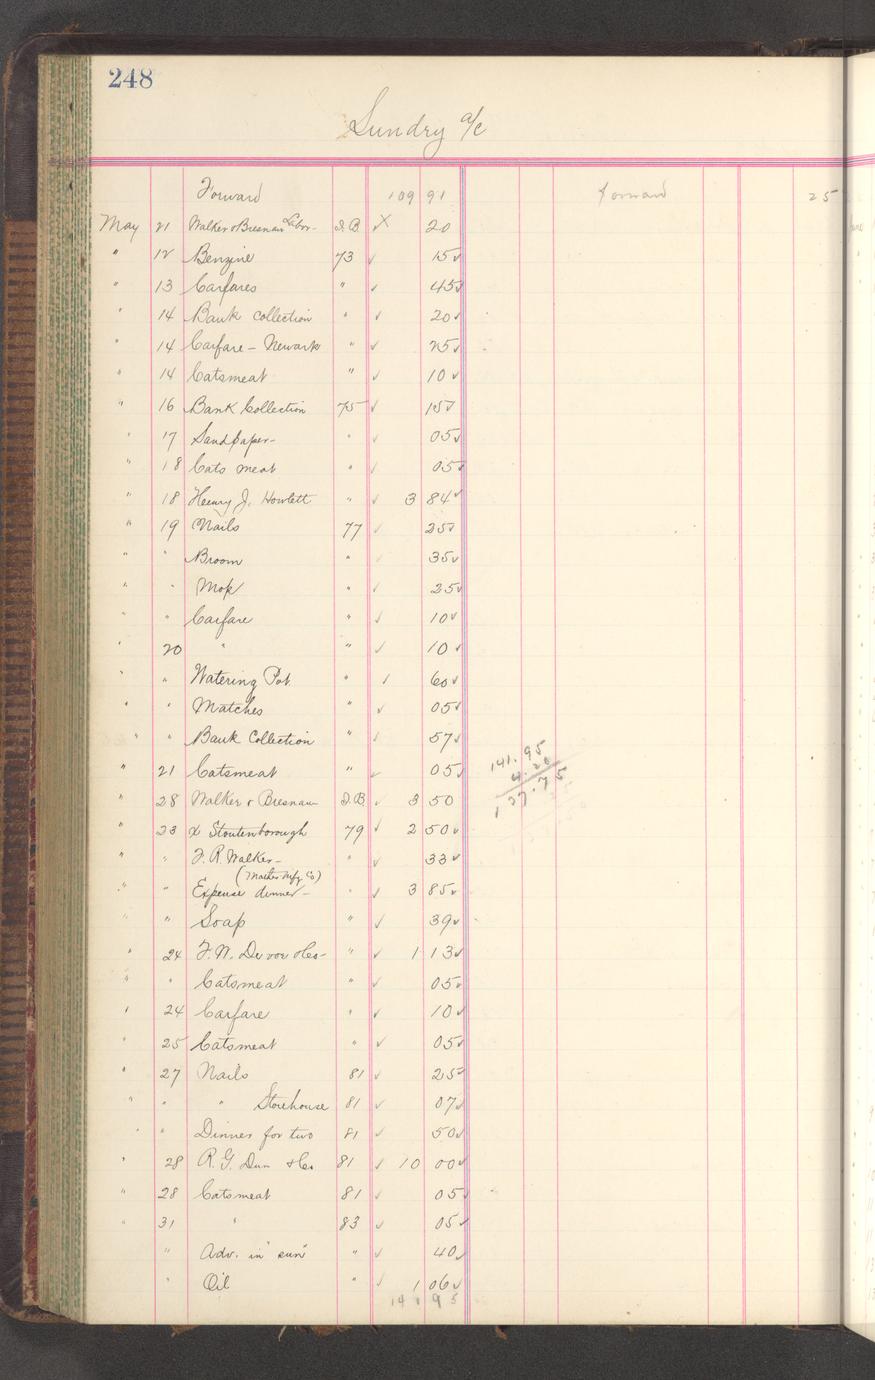 248
Sundry a/c
Forward 109 91 Forward 25
May 21 Walker & Bresnan Labor- D.B. X 20
" 12 Benzine 73 ✓ 15 ✓
" 13 Carfares " ✓ 45 ✓
" 14 Bank Collection " ✓ 20 ✓
" 14 Carfare - Newark " ✓ 25 ✓
" 14 Catsmeat " ✓ 10 ✓
" 16 Bank Collection 75 ✓ 15 ✓
" 17 Sandpaper- " ✓ 05 ✓
" 18 Cats meat " ✓ 05 ✓
" 18 Henry J. Howlett " ✓ 3 84 ✓
" 19 Nails 77 ✓ 25 ✓
" " Broom " 35 ✓
" " Mop " 25 ✓
" " Carfare " ✓ 10 ✓
" 20 " " ✓ 10 ✓
" " Watering Pot. " ✓ 60 ✓
" " Matches " ✓ 05 ✓
" " Bank Collection " ✓ 57 ✓
" 21 Catsmeat " ✓ 05 ✓
141.95
4.20
137.75
" 28 Walker & Bresnan D.B. ✓ 3 50
" 23 x Stoutenborough 79 ✓ 2 50 ✓
" " F. R. Walker- " ✓ 33 ✓
" " Expense dinner- " ✓ 3 85 ✓
" " Soap " ✓ 39 ✓
" 24 F. W. Devoe & Co- " ✓ 1 13 ✓
" " Catsmeat " ✓ 05 ✓
" 24 Carfare " ✓ 10 ✓
" 25 Catsmeat " ✓ 05 ✓
" 27 Nails 81 ✓ 25 ✓
" " " Storehouse 81 ✓ 07 ✓
" " Dinner for two 81 ✓ 50 ✓
" 28 R. G. Dun & Co 81 ✓ 10 00 ✓
" 28 Catsmeat 81 ✓ 05 ✓
" 31 " 83 ✓ 05 ✓
" Adv. in "sun" " ✓ 40 ✓
" Oil " ✓ 1 06 ✓
141 95